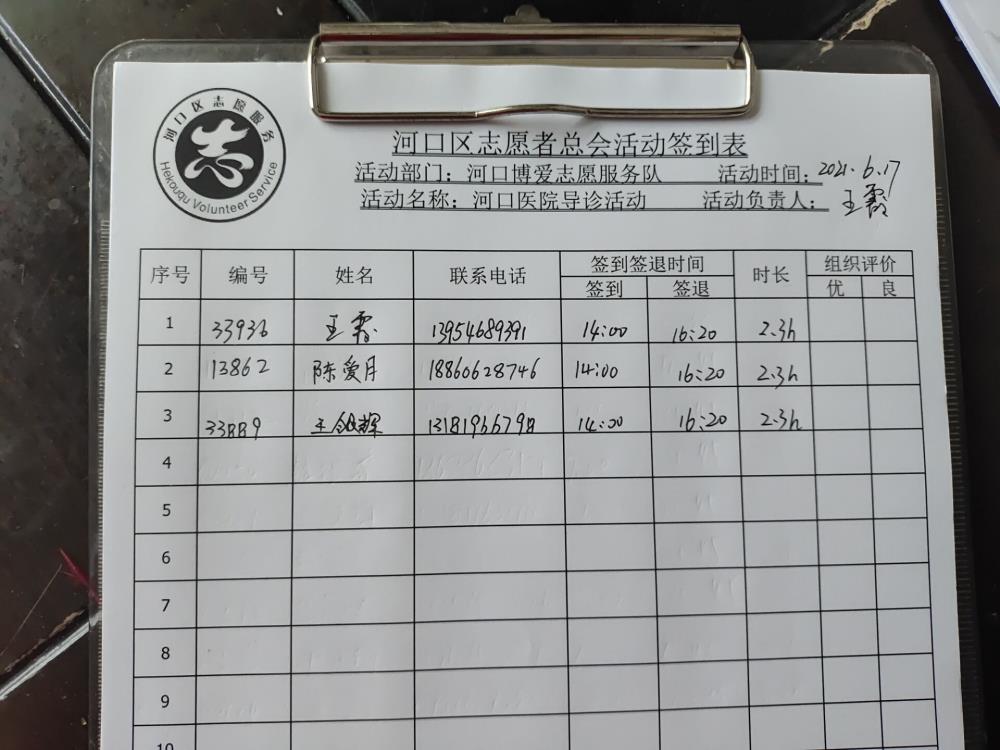 河口区志愿服务
志
Hekouqu Volunteer Service
河口区志愿者总会活动签到表
活动部门：河口博爱志愿服务队 活动时间：2021.6.17
活动名称：河口医院导诊活动 活动负责人：王霞
序号 编号 姓名 联系电话 签到签退时间 时长 组织评价
签到 签退 优 良
1 33936 王霞 13954689391 14:00 16:20 2.3h
2 13862 陈爱月 18860628746 14:00 16:20 2.3h
3 33889 王 辉 14:00 16:20 2.3h
4
5
6
7
8
9
10